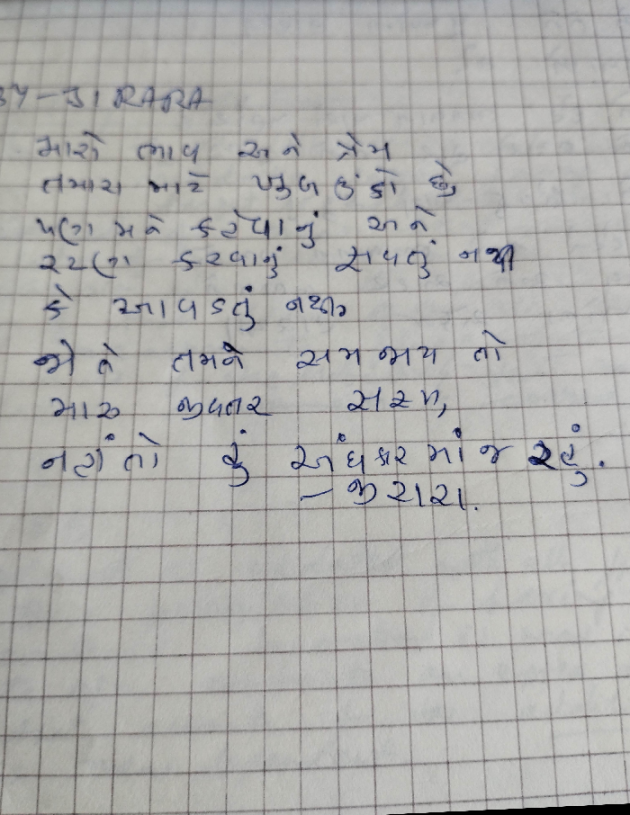 BY - JIRARA
મારો ભાવ અને પ્રેમ
તમારા માટે ખુબ ઉંડો છે
પણ મને કહેવાનું અને
સ્ટણ કરવાનું રાવતું નથી
કે આવડતું નથી.
જો તે તમને સમજાય તો
મારુ જીવતર સરગ,
નહીં તો હું અંધકારમાં જ રહું.
- જીરારા.